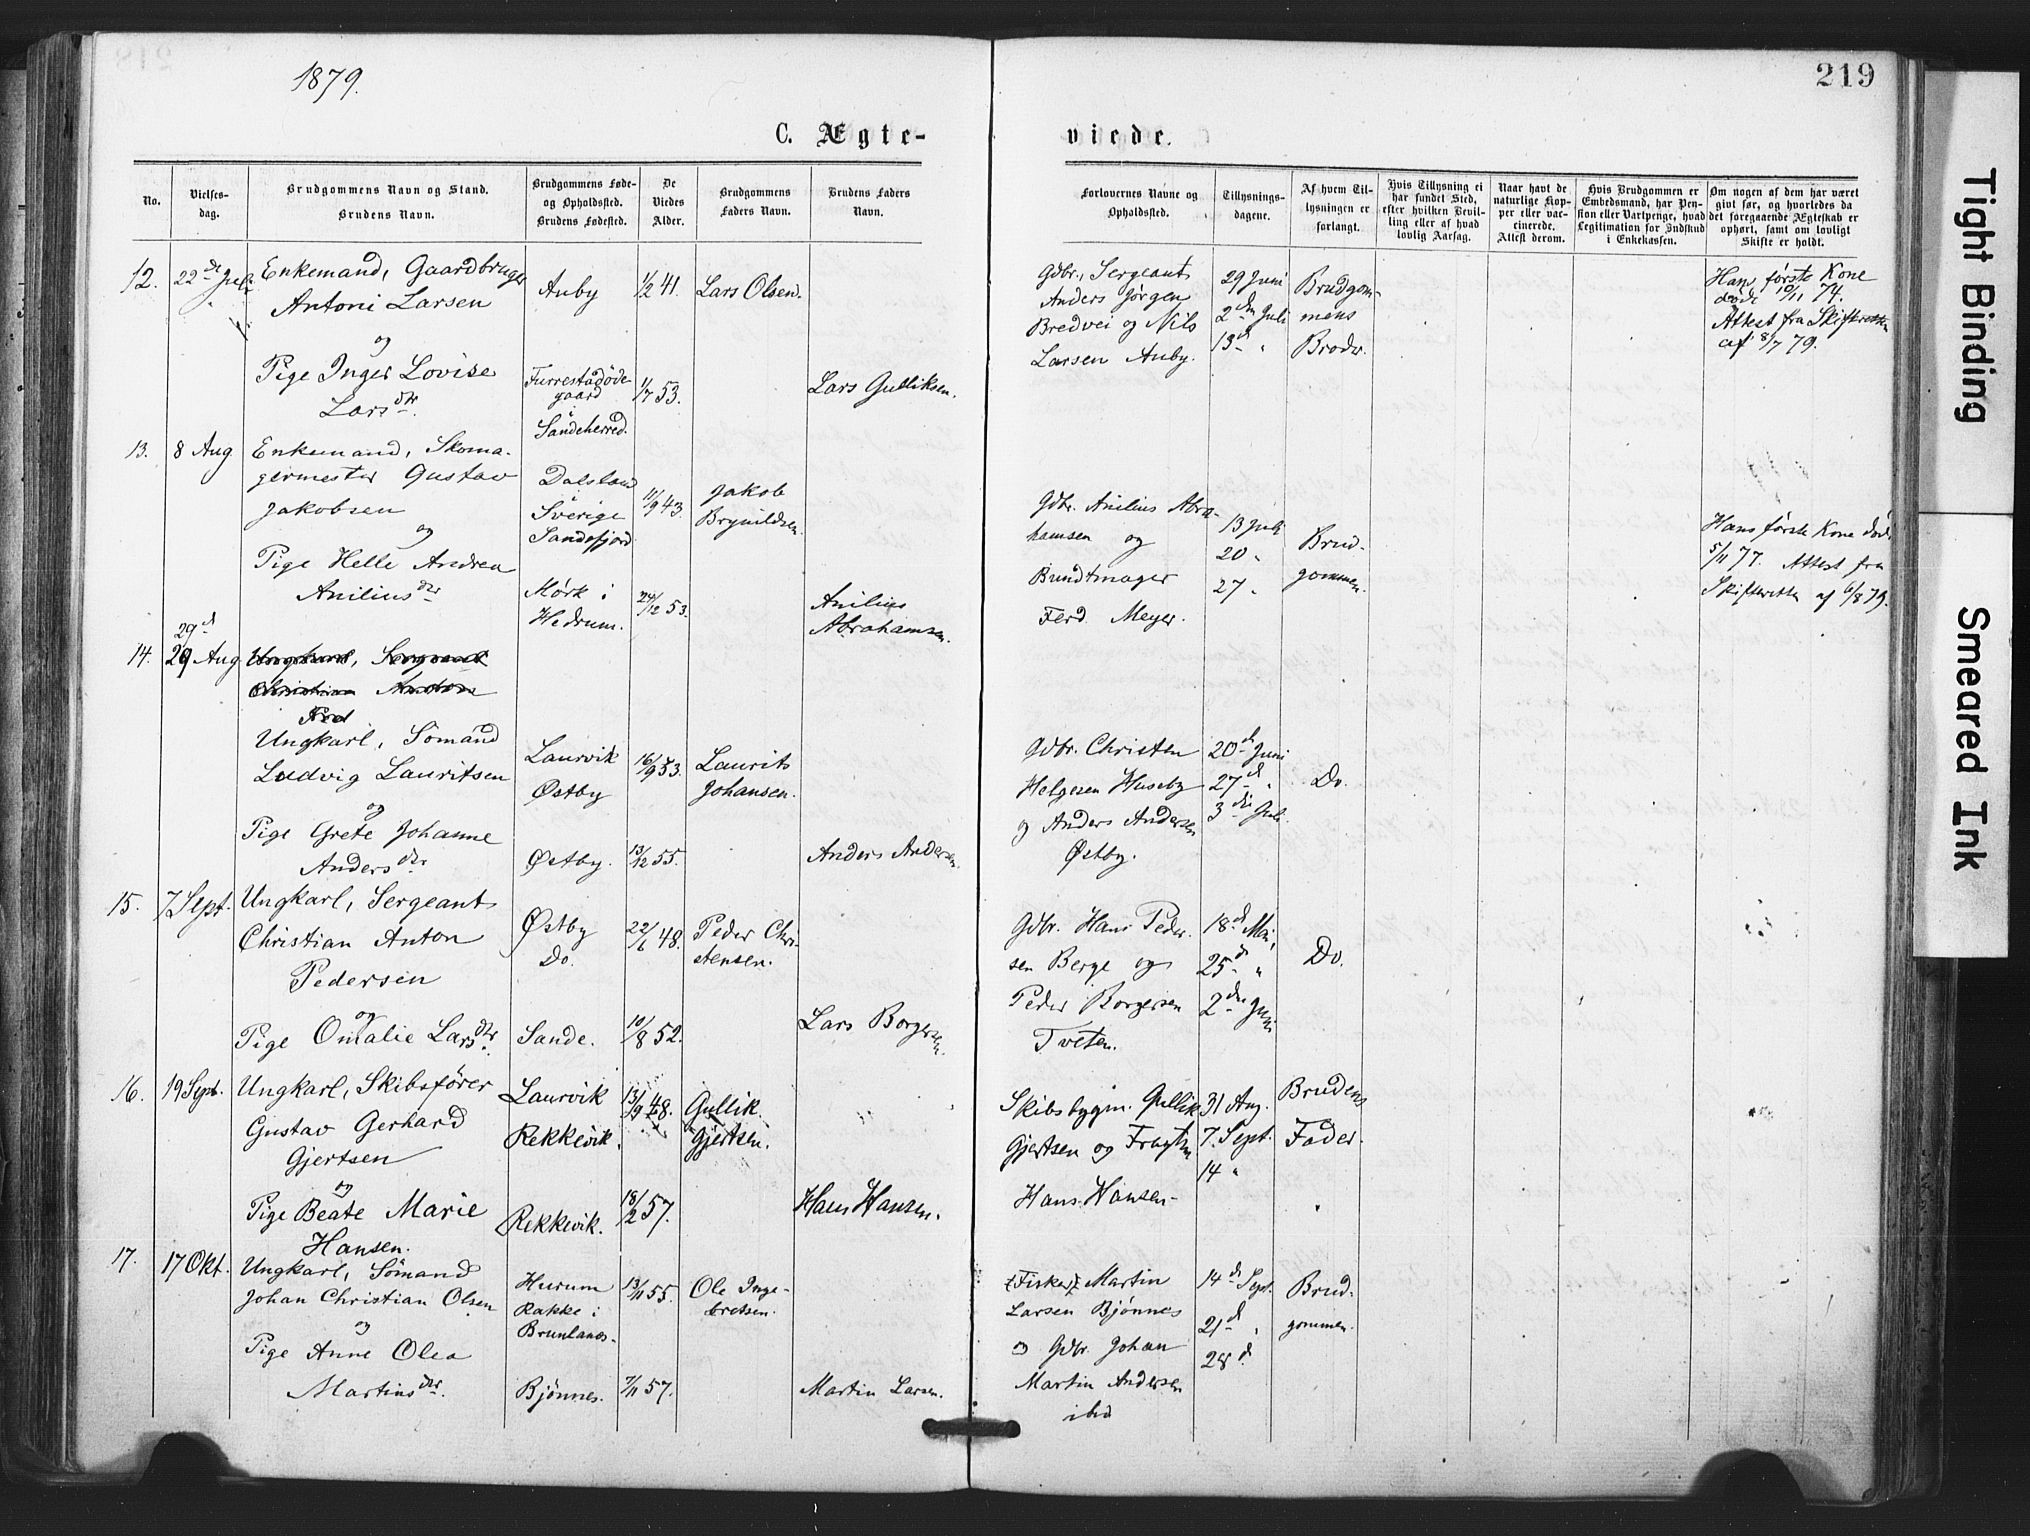 1879.
219
C. Ægte-
viede.
No.
Vielses-
dag.
Brudgommens Navn og Stand.
Brudens Navn.
Brudgommens Føde-
og Opholdssted.
Brudens Fødested.
De
Viedes
Alder.
Brudgommens
Faders Navn.
Brudens Faders
Navn.
Forlovernes Navne og
Opholdssted.
Tillysnings-
dagene.
Af hvem Til-
lysningen er
forlangt.
Hvis Tillysning ei
har fundet Sted,
efter hvilken Bevil-
ling eller af hvad
lovlig Aarsag.
Naar havt de
naturlige Kop-
per eller vac-
cinerede.
Attest derom.
Hvis Brudgommen er
Embedsmand, har Pen-
sion eller Vartpenge, hvad
Legitimation for Indskud
i Enkekassen.
Om nogen af dem har været
givt før, og hvorledes da
det foregaaende Ægteskab er
ophørt, samt om lovligt
Skifte er holdt.
12.
22de Juli
Enkemand, Gaardbruger
Antoni Larsen
og
Pige Inger Lovise
Larsdtr.
Auby
Furrestadøde-
gaard
Sandeherred.
1/2 41.
1/7 53.
Lars Olsen.
Lars Gulliksen.
Gdbr., Sergeant
Anders Jørgen
Bredvei og Nils
Larsen Auby.
29 Juni
2den Juli
13d "
Brudgom-
mens
Broder.
Hans første Kone
døde 10/11 74.
Attest fra Skifteretten
af 8/7 79.
13.
8 Aug
Enkemand, Skoma-
germester Gustav
Jakobsen
og
Pige Helle Andrea
Aniliusdtr
Dalsland
Sverige
Sandefjord
Mørk i
Hedrum.
11/9 43.
24/12 53.
Jakob
Brynildsen
Anilius
Abrahamsen.
Gdbr. Anilius Abra-
hamsen og
Bundtmager
Ferd. Meyer.
13 Juli
20 "
27 "
Brud-
gommen.
Hans første Kone død
5/11 77. Attest fra
Skifteretten af 6/8 79.
14.
29d
29 Aug
Ungkarl, Sergeant
Christian Anton
Ungkarl, Sömand
Ludvig Lauritsen
og
Pige Grete Johanne
Andersdtr.
Laurvik
Østby
Østby.
16/9 53.
13/12 55.
Laurits
Johansen.
Anders Andersen.
Gdbr. Christen
Helgesen Huseby
og Anders Andersen
Østby.
20de Juni
27d "
3die Juli
Do.
15.
7 Sept.
Ungkarl, Sergeant
Christian Anton
Pedersen
og
Pige Omalie Larsdtr.
Østby
Do.
Sande.
22/6 48.
10/8 52.
Peder Chri-
stensen.
Lars Borgersen.
Gdbr. Hans Peder-
sen Berge og
Peder Borgersen
Tveten.
18d Mai,
25d "
2den Juni
Do.
16.
19 Sept.
Ungkarl, Skibsfører
Gustav Gerhard
Gjertsen
og
Pige Beate Marie
Hansen.
Laurvik
Rekkevik.
Rekkevik.
13/9 48.
18/2 57.
Gullik
Gjertsen.
Hans Hansen.
Skibsbygm. Gullik
Gjertsen og Fragtm
Hans Hansen
31 Aug.
7. Sept.
14 "
Brudens
Fader.
17.
17 Okt.
Ungkarl, Sömand
Johan Christian Olsen
og
Pige Anne Olea
Martinsdtr.
Hurum
Rakke i
Brunlanes.
Bjønnes.
13/11 55.
7/11 57.
Ole Inge-
bretsen.
Martin Larsen.
Fisker Martin
Larsen Bjønnes
og Gdbr. Johan
Martin Andersen
ibd
14d Sept.
21d "
28d.
Brud-
gommen.
Tight Binding
Smeared Ink